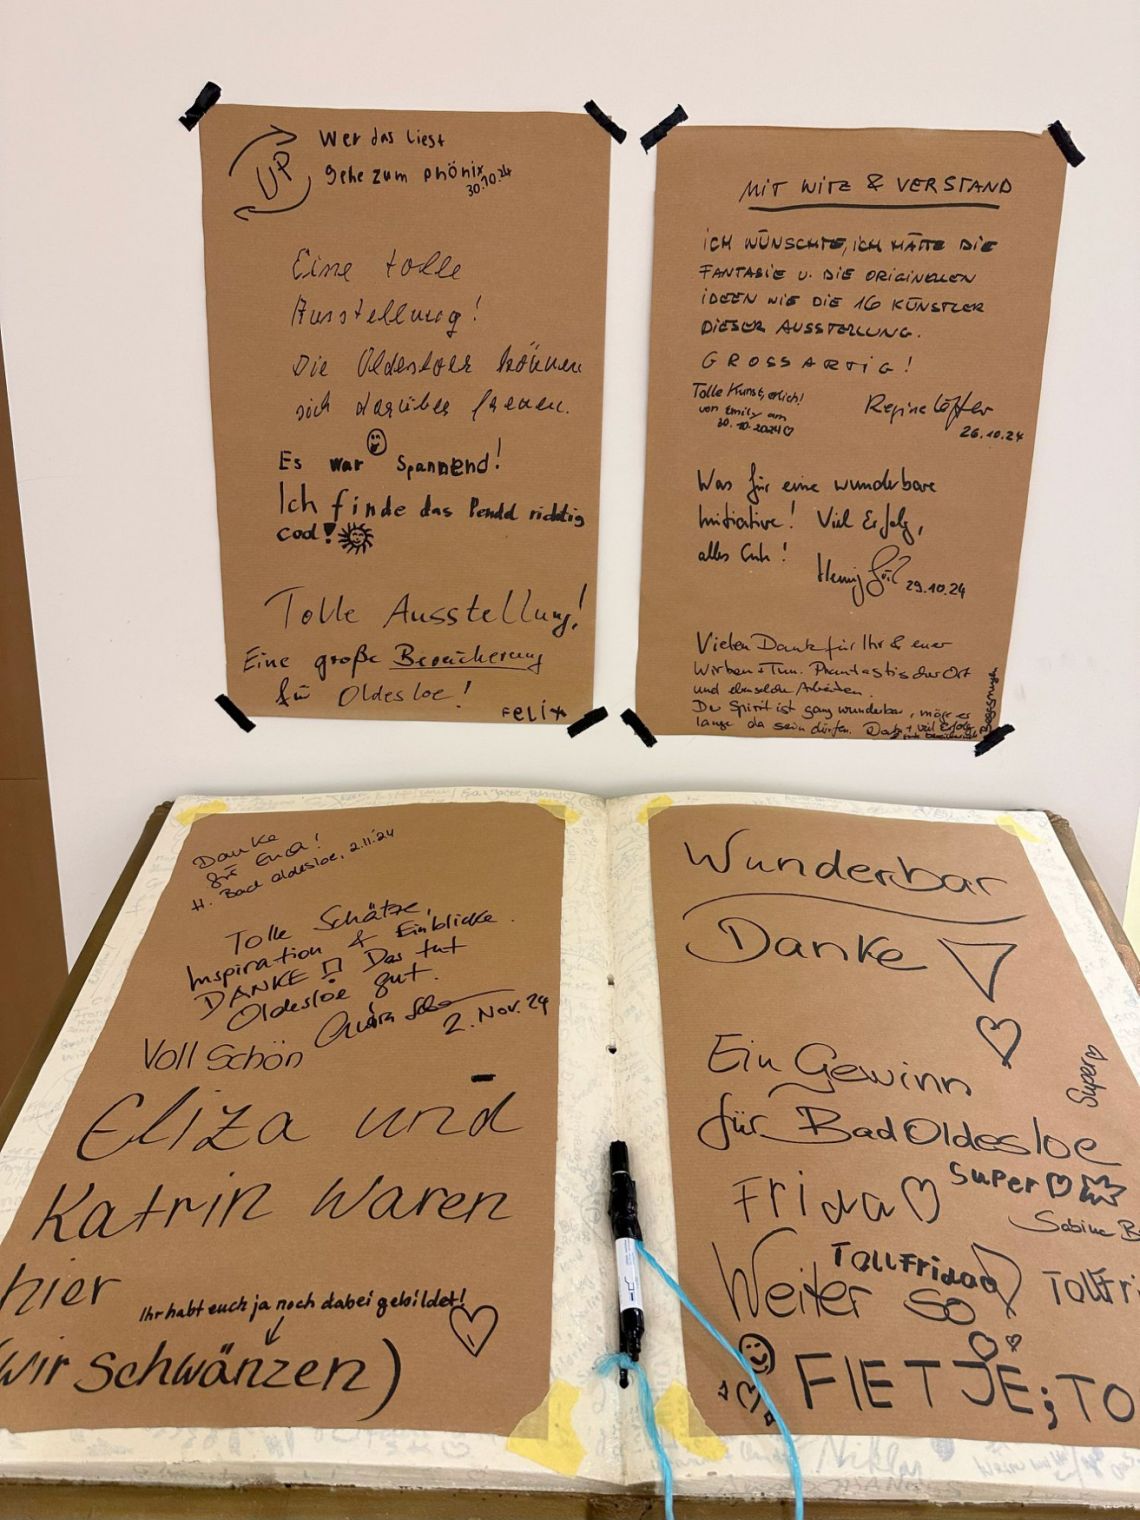 UP
Wer das liest
gehe zum phönix
30.10.24
Eine tolle
Ausstellung!
Die Oldesloer können
sich darüber freuen.
Es war spannend!
Ich finde das richtig
cool!
Tolle Ausstellung!
Eine große Bereicherung
für Oldesloe!
Felix
MIT WITZ & VERSTAND
ICH WÜNSCHTE, ICH HÄTTE DIE
FANTASIE U. DIE ORIGINELLEN
IDEEN WIE DIE 16 KÜNSTLER
DIESER AUSSTELLUNG.
GROSSARTIG!
Tolle Kunst, erlich!
von Emily am
30.10.2024
Regine
26.10.24
Was für eine wunderbare
Initiative! Viel Erfolg,
alles Gute!
29.10.24
Vielen Dank für Ihr & euer
Wirken + Tun. Phantastischer Ort
und Arbeiten.
Der Spirit ist ganz wunderbar, möge es
lange da sein dürfen. Dank + viel Erfolg
Danke
für Euch!
H. Bad Oldesloe, 2.11.24
Tolle Schätze,
Inspiration & Einblicke.
DANKE !! Das tut
Oldesloe gut.
2. Nov. 24
Voll Schön
Eliza und
Katrin waren
hier
Ihr habt euch ja noch dabei gebildet!
(wir schwänzen)
Wunderbar
Danke
Ein Gewinn
für Bad Oldesloe
Super
Frida
Super
Sabine
Toll Frida
Weiter so
FIETJE; TO